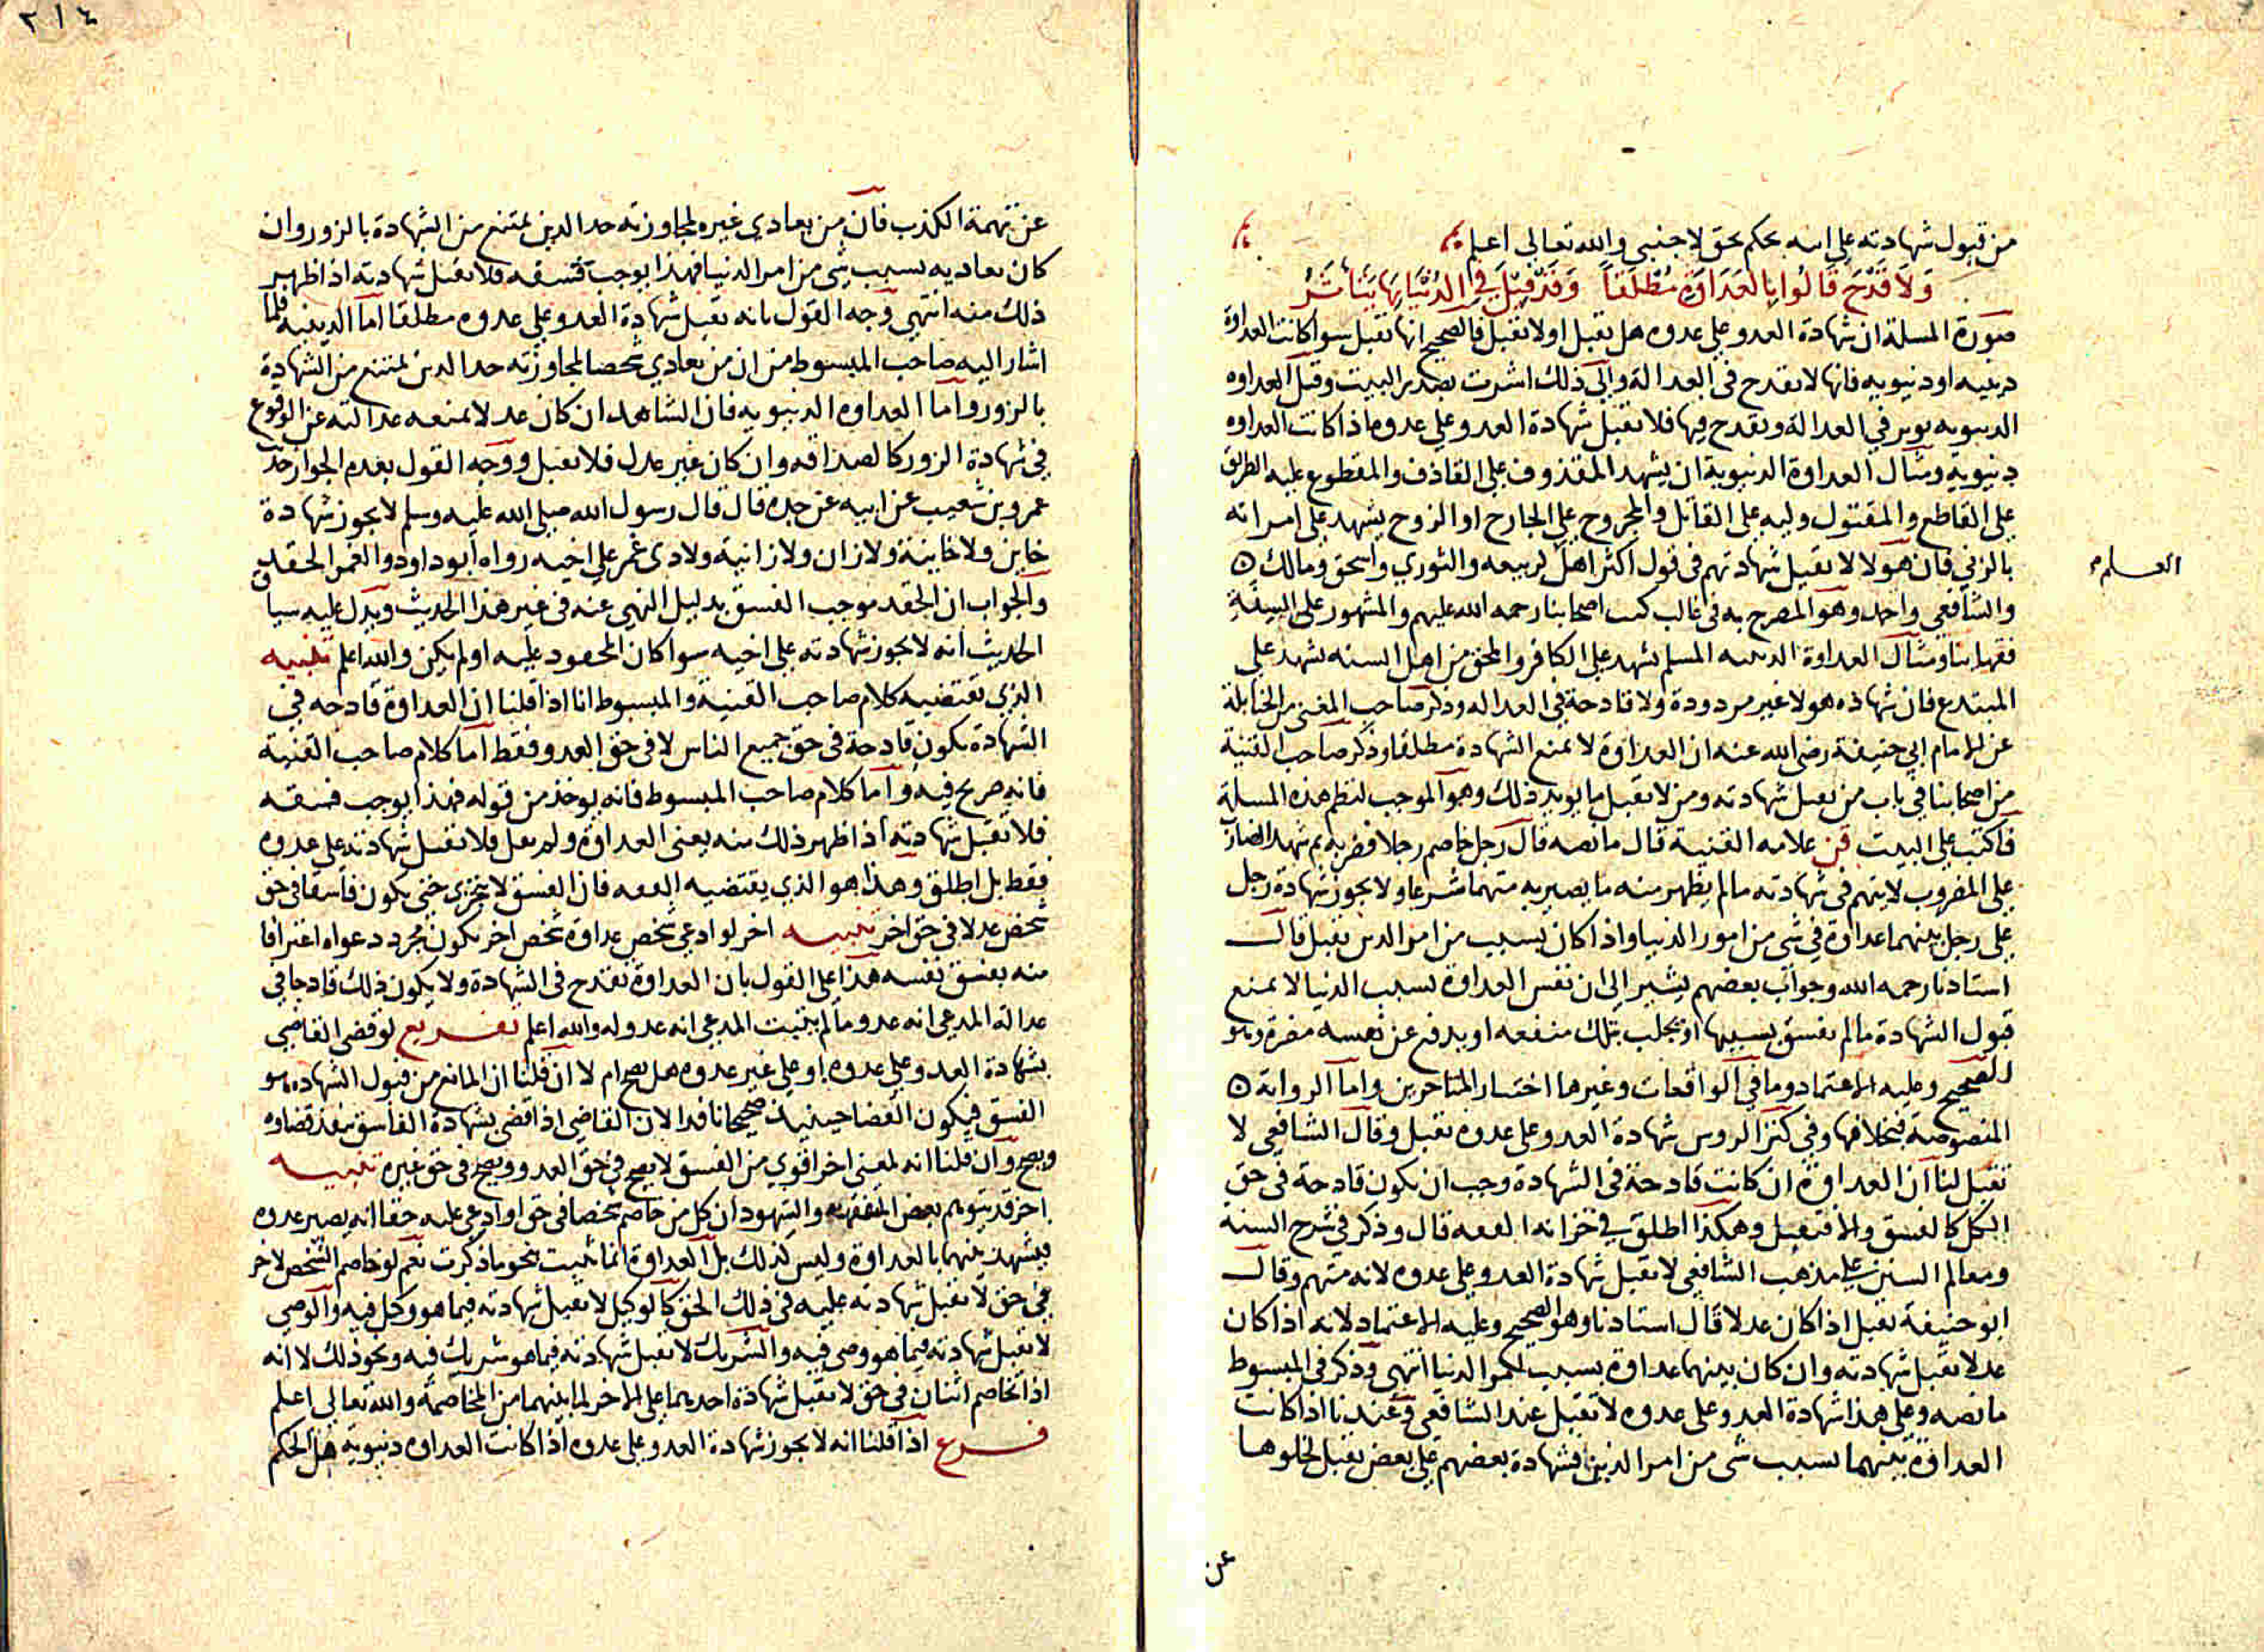 من قبول شهادته على ابنه بحكم بحق لاجنبي والله تعالى اعلم
وَلَا قَدْحَ قَالُوا بِالعَدَاوَةِ مُطْلَقًا وَقَدْ قِيْلَ فِي الدُّنْيَا بِهَا يَتَأَثَّرُ
صورة المسلة ان شهادة العدو على عدوه هل تقبل اولا تقبل فالصحيح انها تقبل سوا كانت العداوة
دينيه او دنيويه فانها لا تقدح في العدالة والى ذلك اشرت بصدر البيت وقيل العداوه
الدنيويه توثر في العدالة وتقدح فيها فلا تقبل شهادة العدو على عدوه اذا كانت العداوه
دنيويه ومثال العداوة الدنيوية ان يشهد المقذوف على القاذف والمقطوع عليه الطريق
على القاطع والمقتول وليه على القاتل والمجروح على الجارح او الزوج يشهد على امراته
بالزني فان هولا لا تقبل شهادتهم في قول اكثر اهل لربيعه والثوري واسحق ومالك
العلم
والشافعي واحمد وهو المصرح به في غالب كتب اصحابنا رحمه الله عليهم والمشهور على السنة
فقهاينا ومثال العداوة الدينيه المسلم يشهد على الكافر والمحق من اهل السنه يشهد على
المبتدع فان شهاده هولا غير مردودة ولا قادحة في العداله وذكر صاحب المغني من الحنابلة
عن الامام ابي حنيفة رضي الله عنه ان العداوة لا تمنع الشهادة مطلقا وذكر صاحب القنية
من اصحابنا في باب من تقبل شهادته ومن لا تقبل ما يويد ذلك وهو الموجب لنظم هذه المسلة
فاكتب على البيت قن علامه القنية قال ما نصه قال رجل خاصم رجلا فضربه ثم شهد الضارب
على المضروب لا يتهم في شهادته ما لم يظهر منه ما يصير به متهما شرعا ولا يجوز شهادة رجل
على رجل بينهما عداوة في شي من امور الدنيا واذا كان بسبب من امر الدين تقبل قال
استادنا رحمه الله وجواب بعضهم يشير الى ان نفس العداوة بسبب الدنيا لا تمنع
قبول الشهادة ما لم يفسق بسببها او يجلب بتلك منفعه او يدفع عن نفسه مضرة وهو
الصحيح وعليه الاعتماد وما في الواقعات وغيرها اختيار المتاخرين واما الرواية
المنصوصة فبخلافها وفي كنز الروس شهادة العدو على عدوه تقبل وقال الشافعي لا
تقبل لنا ان العداوة ان كانت قادحة في الشهادة وجب ان تكون قادحة في حق
الكل كالفسق والا فتقبل وهكذا اطلق في خزانه الفقه قال وذكر في شرح السنة
ومعالم السنن على مذهب الشافعي لا تقبل شهادة العدو على عدوه لانه متهم وقال
ابو حنيفة تقبل اذا كان عدلا قال استادنا وهو الصحيح وعليه الاعتماد لانه اذا كان
عدلا تقبل شهادته وان كان بينهما عداوة بسبب امر الدنيا انتهى وذكر في المبسوط
ما نصه وعلى هذا شهادة العدو على عدوه لا تقبل عند الشافعي وعندنا اذا كانت
العداوة بينهما بسبب شي من امر الدين فشهادة بعضهم على بعض تقبل لخلوها
عن
٢١٤
عن تهمة الكذب فان من يعادي غيره لمجاوزته حد الدين يمتنع من الشهادة بالزور وان
كان يعاديه بسبب شي من امر الدنيا فهذا يوجب فسقه فلا تقبل شهادته اذا ظهر
ذلك منه انتهى وجه القول بانه تقبل شهادة العدو على عدوه مطلقا اما الدينيه فلما
اشار اليه صاحب المبسوط من ان من يعادي شخصا لمجاوزته حد الدين يمتنع من الشهادة
بالزور واما العداوه الدنيويه فان الشاهد ان كان عدلا تمنعه عدالته عن الوقوع
في شهادة الزور كالصداقه وان كان غير عدل فلا تقبل ووجه القول بعدم الجواز حديث
عمرو بن شعيب عن ابيه عن جده قال قال رسول الله صلى الله عليه وسلم لا يجوز شهادة
خاين ولا خاينة ولا زان ولا زانية ولا ذي غمر على اخيه رواه ابو داود والغمر الحقد
والجواب ان الحقد موجب الفسق بدليل النهي عنه في غير هذا الحديث ويدل عليه سياق
الحديث انه لا يجوز شهادته على اخيه سوا كان المحقود عليه اولم يكن والله اعلم تنبيه
الذي تقتضيه كلام صاحب القنية والمبسوط انا اذا قلنا ان العداوة قادحه في
الشهادة تكون قادحة في حق جميع الناس لا في حق العدو فقط اما كلام صاحب القنية
فانه صريح فيه واما كلام صاحب المبسوط فانه يوخذ من قوله فهذا يوجب فسقه
فلا تقبل شهادته اذا ظهر ذلك منه يعني العداوة ولم يقل فلا تقبل شهادته على عدوه
فقط بل اطلق وهذا هو الذي يقتضيه الفقه فان الفسق لا يتجزى حتى يكون فاسقا في حق
شخص عدلا في حق اخر تنبيه اخر لو ادعى شخص عداوة شخص اخر يكون مجرد دعواه اعترافا
منه بفسق نفسه هذا على القول بان العداوة تقدح في الشهادة ولا يكون ذلك قادحا في
عدالة المدعي انه عدو ما لم يثبت المدعي انه عدو له والله اعلم تفريع لو قضى القاضي
بشهادة العدو على عدوه او على غير عدوه هل يصح ام لا ان قلنا ان المانع من قبول الشهاده هو
الفسق فيكون القضا حينيذ صحيحا نافذا لان القاضي اذا قضى بشهادة الفاسق ينفذ قضاوه
ويصح وان قلنا انه لمعنى اخر اقوى من الفسق لا يصح في حق العدو ويصح في حق غيره تنبيه
اخر قد يتوهم بعض المتفقهه والشهود ان كل من خاصم شخصا في حق او ادعى عليه حقا انه يصير عدوه
فيشهد بينهما بالعداوة وليس كذلك بل العداوة انما تثبت بنحو ما ذكرت نعم لو خاصم الشخص لاخر
في حق لا تقبل شهادته عليه في ذلك الحق كالوكيل لا تقبل شهادته فيما هو وكيل فيه والوصي
لا تقبل شهادته فيما هو وصي فيه والشريك لا تقبل شهادته فيما هو شريك فيه ونحو ذلك لا انه
اذا تخاصم اثنان في حق لا تقبل شهادة احدهما على الاخر لما بينهما من المخاصمة والله تعالى اعلم
فرع اذا قلنا انه لا يجوز شهادة العدو على عدوه اذا كانت العداوه دنيوية هل الحكم